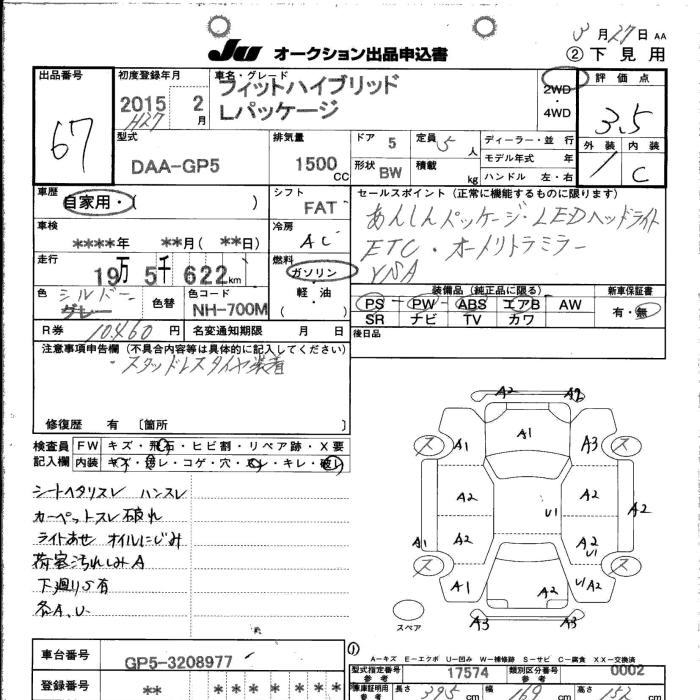 3月27日 AA
JU オークション出品申込書
② 下見用
出品番号
67
初度登録年月
2015年 2月
H27
車名・グレード
フィットハイブリッド
Lパッケージ
2WD
・
4WD
評価点
3.5
外装 内装
1 C
型式
DAA-GP5
排気量
1500 CC
ドア 5
定員 5人
形状 BW
積載 kg
ディーラー・並行
モデル年式 年
ハンドル 左・右
車歴
自家用・( )
シフト
FAT
セールスポイント (正常に機能するものに限ります)
あんしんパッケージ・LEDヘッドライト
ETC・オートリトラミラー
VSA
車検
****年 **月( **日)
冷房
AC
走行
19万 5千 622km
燃料
ガソリン
・
軽・油
( )
色
シルバー
グレー
色替
色コード
NH-700M
装備品 (純正品に限る)
PS PW ABS エアB AW
SR ナビ TV カワ
新車保証書
有・無
R券 10460 円
名変通知期限 月 日
後日品
注意事項申告欄 (不具合内容等は具体的に記入してください)
・スタッドレスタイヤ装着
修復歴 有 〔箇所 〕
検査員
記入欄
FW キズ・飛石・ヒビ割・リペア跡・X要
内装 キズ・汚レ・コゲ・穴・スレ・キレ・破レ
シートヘタリスレ ハンスレ
カーペットスレ破れ
ライトあせ オイルにじみ
荷室汚れしみA
下廻りS有
各A、U
A2
A1
A1
A3
A2
A2
A2
U1
A1
A2
A2
U1
A1
A2
U1 A2
A3
A3
ス
ス
ス
ス
スペア
①
A-キズ E-エクボ U-凹み W-補修跡 S-サビ C-腐食 XX-交換済
車台番号
GP5-3208977
登録番号
** * * * * * * *
型式指定番号
参考
17574
類別区分番号
参考
0002
車庫証明用
参考
長さ 395 cm
幅 169 cm
高さ 152 cm